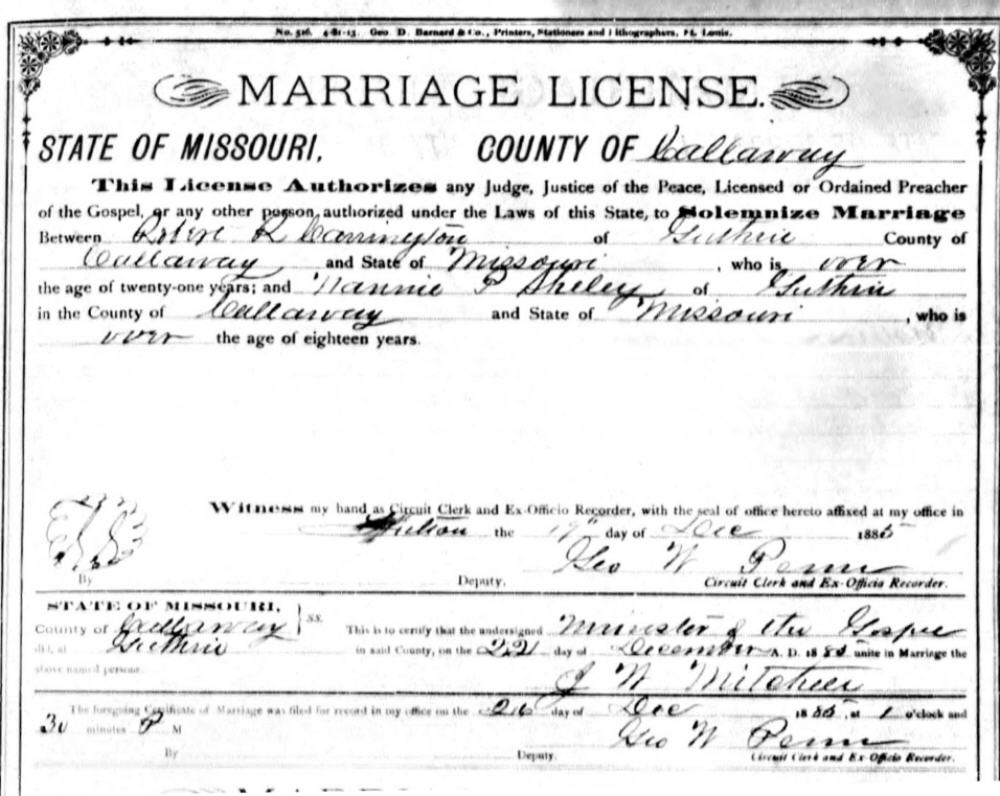 No. 516. 4-81-13. Geo D. Barnard & Co., Printers, Stationers and Lithographers, St. Louis.
MARRIAGE LICENSE.
STATE OF MISSOURI, COUNTY OF Callaway
This License Authorizes any Judge, Justice of the Peace, Licensed or Ordained Preacher
of the Gospel, or any other person authorized under the Laws of this State, to Solemnize Marriage
Between Robert R Carrington of Guthrie County of
Callaway and State of Missouri, who is over
the age of twenty-one years; and Nannie P Sheley of Guthrie
in the County of Callaway and State of Missouri, who is
over the age of eighteen years.
Witness my hand as Circuit Clerk and Ex-Officio Recorder, with the seal of office hereto affixed at my office in
Fulton the 19th day of Dec 1885
Geo W Penn
By Deputy. Circuit Clerk and Ex-Officio Recorder.
STATE OF MISSOURI, } SS.
County of Callaway This is to certify that the undersigned Minister of the Gospel
did, at Guthrie in said County, on the 22 day of December A. D. 188 unite in Marriage the
above named persons.
J W Mitchell
The foregoing Certificate of Marriage was filed for record in my office on the 26 day of Dec 1885, at 1 o'clock and
30 minutes P M
Geo W Penn
By Deputy. Circuit Clerk and Ex-Officio Recorder.